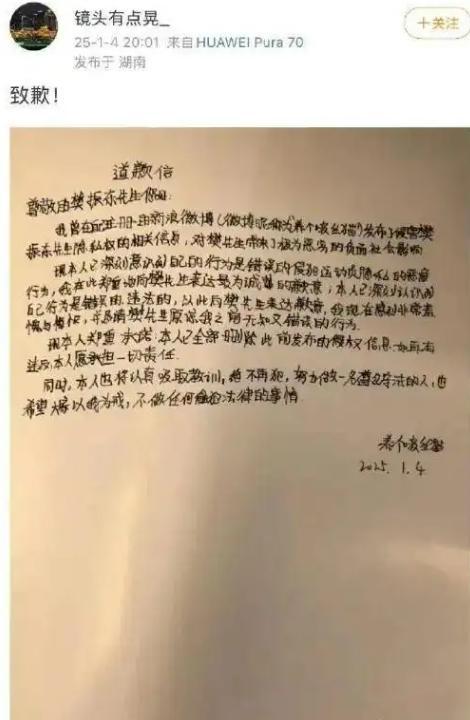 镜头有点晃_
+关注
25-1-4 20:01 来自HUAWEI Pura 70
发布于 湖南
致歉！
道歉信
尊敬的樊振东先生你好：
我曾在配注册的新浪微博（微博昵称为养个）发布了侵害樊
振东先生隐私权的相关信息，对樊先生带来了极为恶劣的负面社会影响
现本人已深刻意识到自己的行为是错误的侵犯运动员隐私的恶劣
行为，我在此郑重地向樊先生表达最为诚挚的歉意；本人已深刻认识到
自己行为是错误的、违法的，以此向樊先生表达歉意，我现在感到非常羞
愧与懊悔，并恳请樊先生原谅我之前无知又错误的行为。
现本人郑重承诺：本人已全部删除此前发布的侵权信息，如再有
违反本人愿承担一切责任。
同时，本人也将认真吸取教训，绝不再犯，努力做一名遵纪守法的人，也
希望大家以我为戒，不做任何触犯法律的事情
养个
2025.1.4